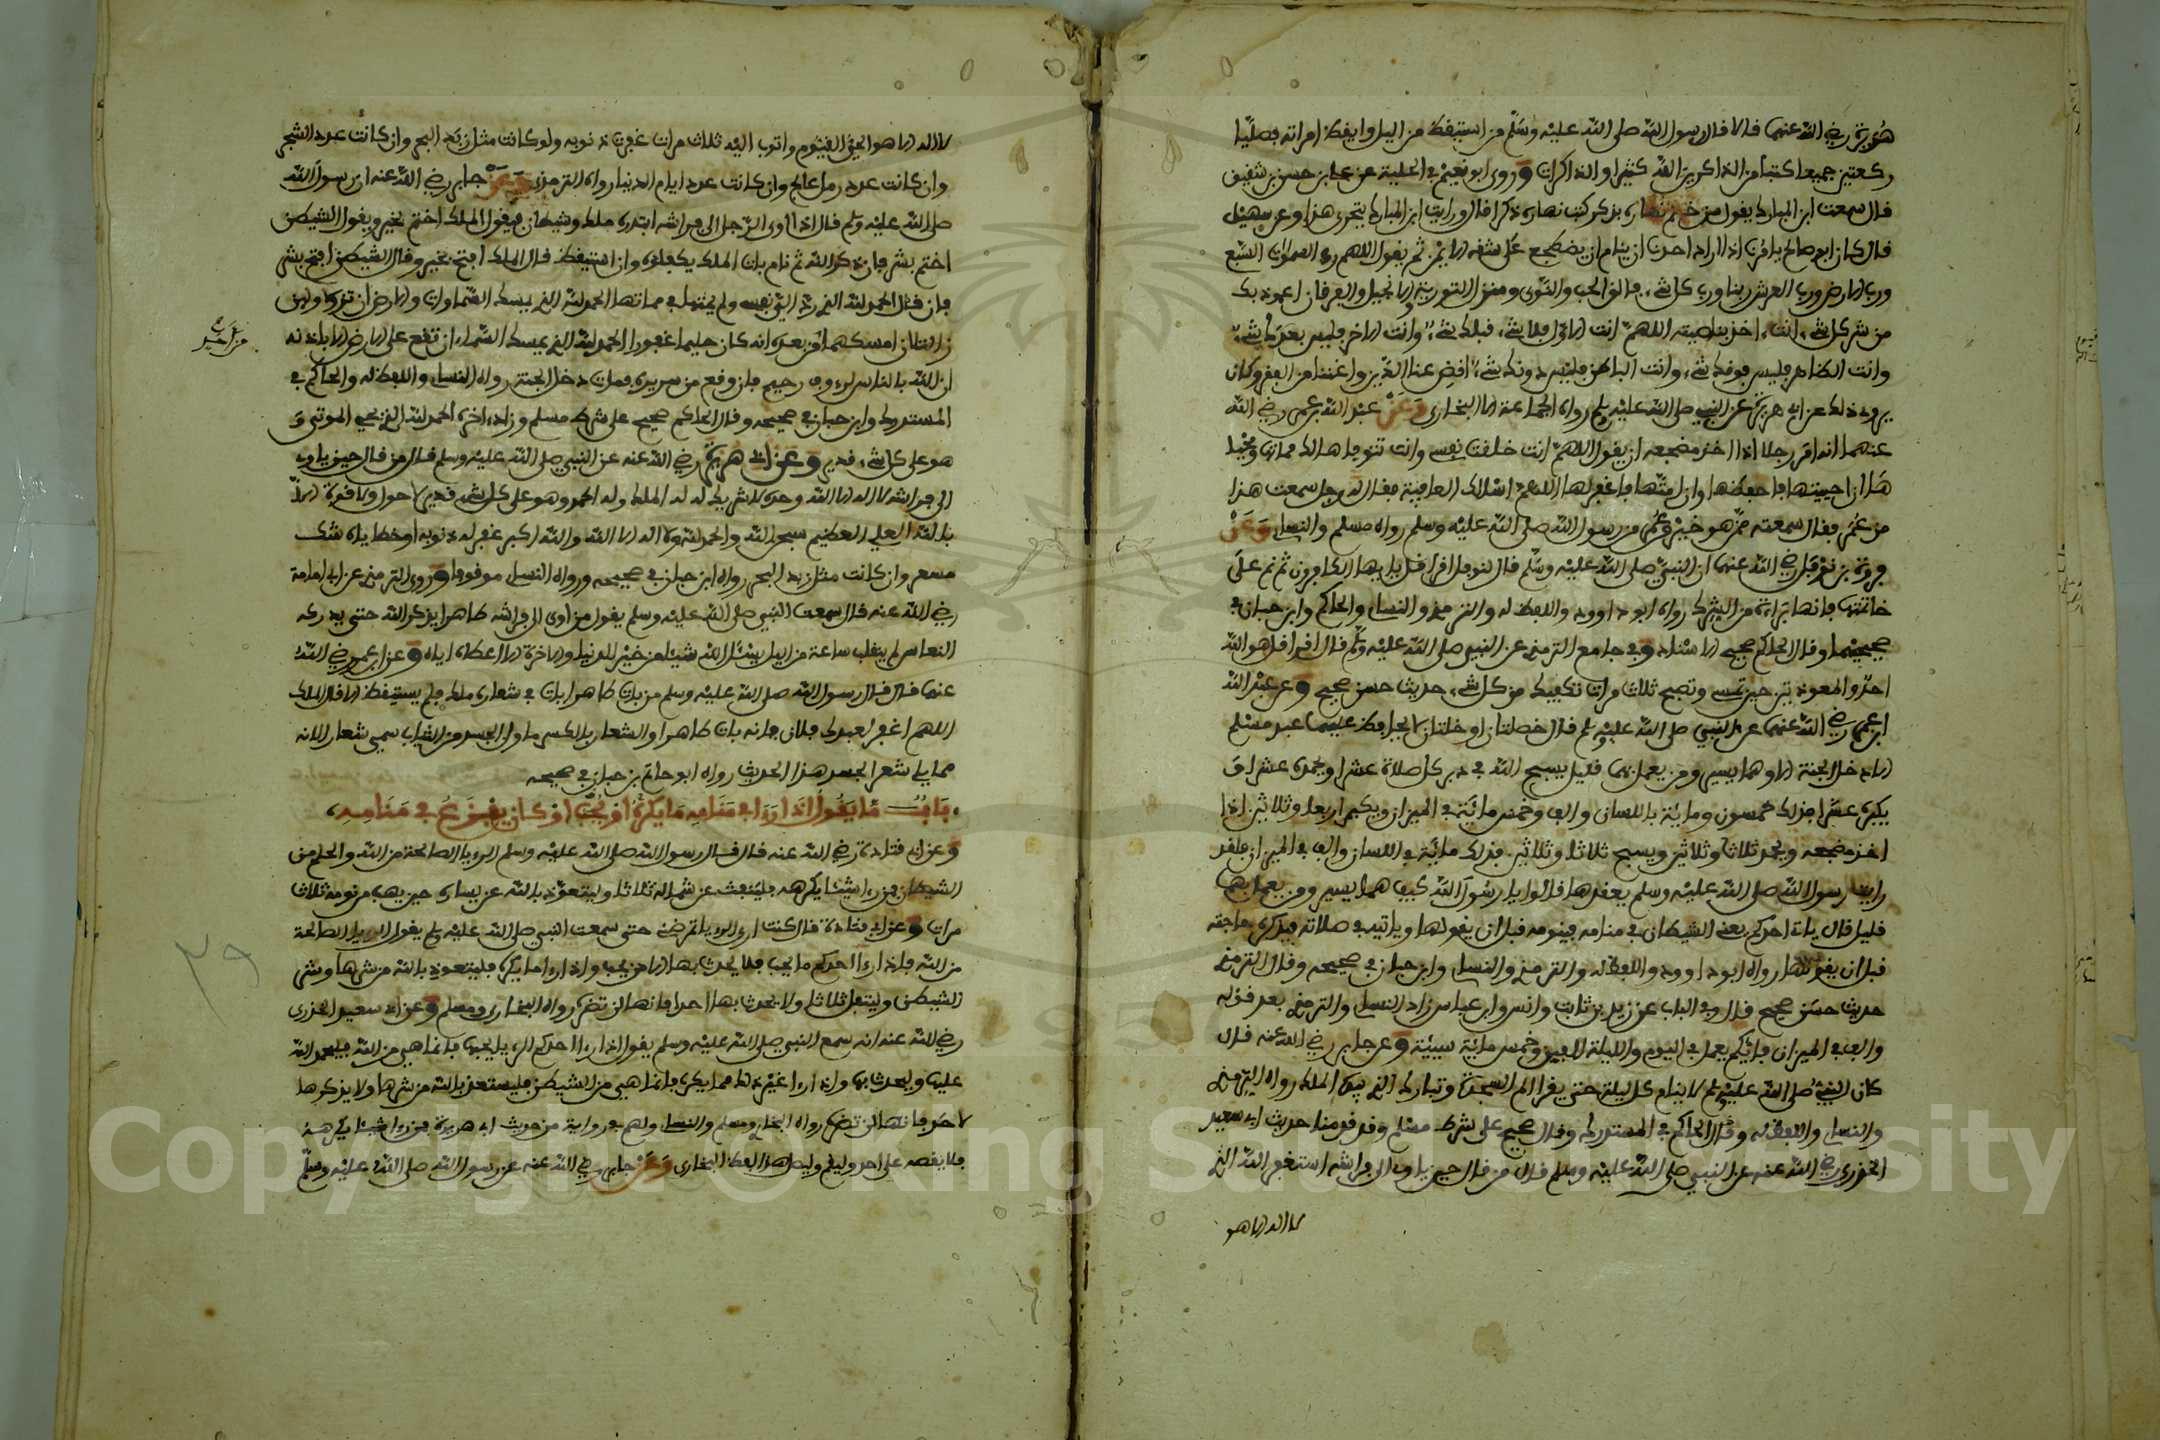 هريرة رضي الله عنهما قالا قال رسول الله صلى الله عليه وسلم من استيقظ من الليل وايقظ امراته فصليا
ركعتين جميعا كتبا من الذاكرين الله كثيرا والذاكرات وروى ابو نعيم في الحلية عن علي بن حسن بن شقيق
قال سمعت ابن المبارك يقول من ختم نهاره بذكر كتب نهاره ذكرا قال ورايت ابن المبارك يتحرى هذا وعن سهيل
قال كان ابو صالح يامرنا اذا اراد احدنا ان ينام ان يضطجع على شقه الايمن ثم يقول اللهم رب السموات السبع
ورب الارض ورب العرش ربنا ورب كل شيء فالق الحب والنوى ومنزل التورية والانجيل والفرقان اعوذ بك
من شر كل شيء انت اخذ بناصيته اللهم انت الاول فلا شيء قبلك شيء وانت الاخر فليس بعدك شيء
وانت الظاهر فليس فوقك شيء وانت الباطن فليس دونك شيء اقض عنا الدين واغننا من الفقر وكان
يروي ذلك عن ابي هريرة عن النبي صلى الله عليه وسلم رواه الجماعة الا البخاري وعن عبد الله بن عمر رضي الله
عنهما انه امر رجلا اذا اخذ مضجعه ان يقول اللهم انت خلقت نفسي وانت تتوفاها لك مماتها ومحيا
ها ان احييتها فاحفظها وان امتها فاغفر لها اللهم اسالك العافية فقال له رجل سمعت هذا
من عمر فقال سمعته ممن هو خير من عمر من رسول الله صلى الله عليه وسلم رواه مسلم والنسائي وعن
فروة بن نوفل رضي الله عنه ان النبي صلى الله عليه وسلم قال لنوفل اقرا قل يا ايها الكافرون ثم نم على
خاتمتها فانها براءة من الشرك رواه ابو داوود واللفظ له والترمذي والنسائي والحاكم وابن حبان في
صحيحيهما وقال الحاكم صحيح الاسناد وفي جامع الترمذي عن النبي صلى الله عليه وسلم قال اقرا قل هو الله
احد والمعوذتين حين تمسي وتصبح ثلاث مرات تكفيك من كل شيء حديث حسن صحيح وعن عبد الله
ابن عمر رضي الله عنهما عن النبي صلى الله عليه وسلم قال خصلتان او خلتان لا يحافظ عليهما عبد مسلم
الا دخل الجنة الا وهما يسير ومن يعمل بهما قليل يسبح الله في دبر كل صلاة عشرا ويحمده عشرا و
يكبره عشرا فذلك خمسون ومائة باللسان والف وخمس مائة في الميزان ويكبر اربعا وثلاثين اذا
اخذ مضجعه ويحمد ثلاثا وثلاثين ويسبح ثلاثا وثلاثين فذلك مائة في اللسان والف في الميزان فلقد
رايت رسول الله صلى الله عليه وسلم يعقدها قالوا يا رسول الله كيف هما يسير ومن يعمل بهما
قليل قال ياتي احدكم يعني الشيطان في منامه فينومه قبل ان يقولها وياتيه في صلاته فيذكره حاجته
قبل ان يقولها رواه ابو داوود واللفظ له والترمذي والنسائي وابن حبان في صحيحه وقال الترمذي
حديث حسن صحيح قال وفي الباب عن زيد بن ثابت وانس وابن عباس زاد النسائي والترمذي بعد قوله
والف في الميزان فايكم يعمل في اليوم والليلة الفين وخمس مائة سيئة وعن جابر رضي الله عنه قال
كان النبي صلى الله عليه وسلم لا ينام كل ليلة حتى يقرا الم السجدة وتبارك الذي بيده الملك رواه الترمذي
والنسائي واللفظ له وقال الحاكم في المستدرك وقال صحيح على شرط مسلم وقد قدمنا حديث ابي سعيد
الخدري رضي الله عنه عن النبي صلى الله عليه وسلم قال من قال حين ياوي الى فراشه استغفر الله الذي
لا اله الا هو
لا اله الا هو الحي القيوم واتوب اليه ثلاث مرات غفرت ذنوبه ولو كانت مثل زبد البحر وان كانت عدد الشجر
وان كانت عدد رمل عالج وان كانت عدد ايام الدنيا رواه الترمذي وعن جابر رضي الله عنه ان رسول الله
صلى الله عليه وسلم قال اذا اوى الرجل الى فراشه ابتدره ملك وشيطان فيقول الملك اختم بخير ويقول الشيطن
اختم بشر فان ذكر الله ثم نام بات الملك يكلؤه وان استيقظ قال الملك افتح بخير وقال الشيطن افتح بشر
فان قال الحمد لله الذي رد الي نفسي ولم يمتها في منامها الحمد لله الذي يمسك السماوات والارض ان تزولا ولئن
زالتا ان امسكهما من بعده انه كان حليما غفورا الحمد لله الذي يمسك السماء ان تقع على الارض الا باذنه
ان الله بالناس لرءوف رحيم فان وقع من سريره فمات دخل الجنة رواه النسائي واللفظ له والحاكم في
المستدرك وابن حبان في صحيحه وقال الحاكم صحيح على شرط مسلم وزاد اخره الحمد لله الذي يحيي الموتى و
هو على كل شيء قدير وعن ابي هريرة رضي الله عنه عن النبي صلى الله عليه وسلم قال من قال حين ياوي
الى فراشه لا اله الا الله وحده لا شريك له له الملك وله الحمد وهو على كل شيء قدير لا حول ولا قوة الا
بالله العلي العظيم سبحن الله والحمد لله ولا اله الا الله والله اكبر غفر له ذنوبه او خطاياه شك
مسعر وان كانت مثل زبد البحر رواه ابن حبان في صحيحه ورواه النسائي موقوفا وروى الترمذي عن ابي امامة
رضي الله عنه قال سمعت النبي صلى الله عليه وسلم يقول من اوى الى فراشه طاهرا يذكر الله حتى يدركه
النعاس لم ينقلب ساعة من الليل يسئل الله شيئا من خير الدنيا والاخرة الا اعطاه اياه وعن ابن عمر رضي الله
عنهما قال قال رسول الله صلى الله عليه وسلم من بات طاهرا بات في شعاره ملك فلم يستيقظ الا قال الملك
اللهم اغفر لعبدك فلان فانه بات طاهرا والشعار بالكسر ما ولي الجسد من الثياب سمي شعارا لانه
مما يلي شعر الجسد هذا الحديث رواه ابو حاتم بن حبان في صحيحه
باب ما يقول اذا رءا في منامه ما يكره او يحب او كان يفزع في منامه
وعن ابي قتادة رضي الله عنه قال قال رسول الله صلى الله عليه وسلم الرءيا الصالحة من الله والحلم من
الشيطان فمن رءا شيئا يكرهه فلينفث عن شماله ثلاثا وليتعوذ بالله عن يساره حين يهب من نومه ثلاث
مرات وعن ابي قتادة قال كنت ارى الرءيا تمرضني حتى سمعت النبي صلى الله عليه وسلم يقول الرءيا الصالحة
من الله فاذا رءا احدكم ما يحب فلا يحدث بها الا من يحب واذا رءا ما يكره فليتعوذ بالله من شرها وشر
الشيطن وليتفل ثلاثا ولا يحدث بها احدا فانها لن تضره رواه البخاري ومسلم وعن ابي سعيد الخدري
رضي الله عنه انه سمع النبي صلى الله عليه وسلم يقول اذا رءا احدكم الرءيا يحبها فانما هي من الله فليحمد الله
عليها وليحدث بها واذا رءا غير ذلك مما يكره فانما هي من الشيطن فليستعذ بالله من شرها ولا يذكرها
لاحد فانها لن تضره رواه البخاري ومسلم والنسائي ولهم في رواية من حديث ابي هريرة فمن رءا شيئا يكرهه
فلا يقصه على احد وليقم وليصل هذا لفظ البخاري وعن جابر رضي الله عنه عن رسول الله صلى الله عليه وسلم
٢٩
Copyright © King Saud University